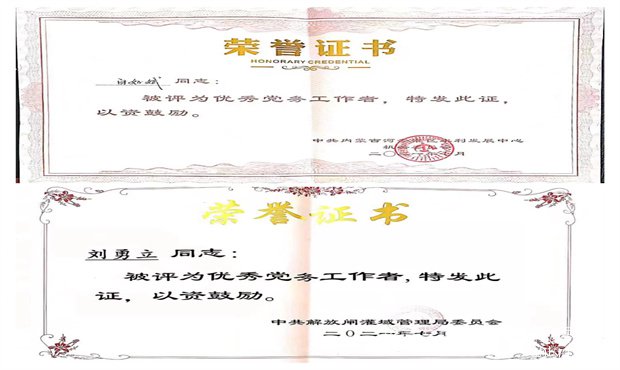 荣誉证书
HONORARY CREDENTIAL
同志：
被评为优秀党务工作者，特发此证，
以资鼓励。
中共内蒙古河
利发展中心
月
荣誉证书
刘勇立 同志：
被评为优秀党务工作者，特发此
证，以资鼓励。
中共解放闸灌域管理局委员会
二〇二一年七月